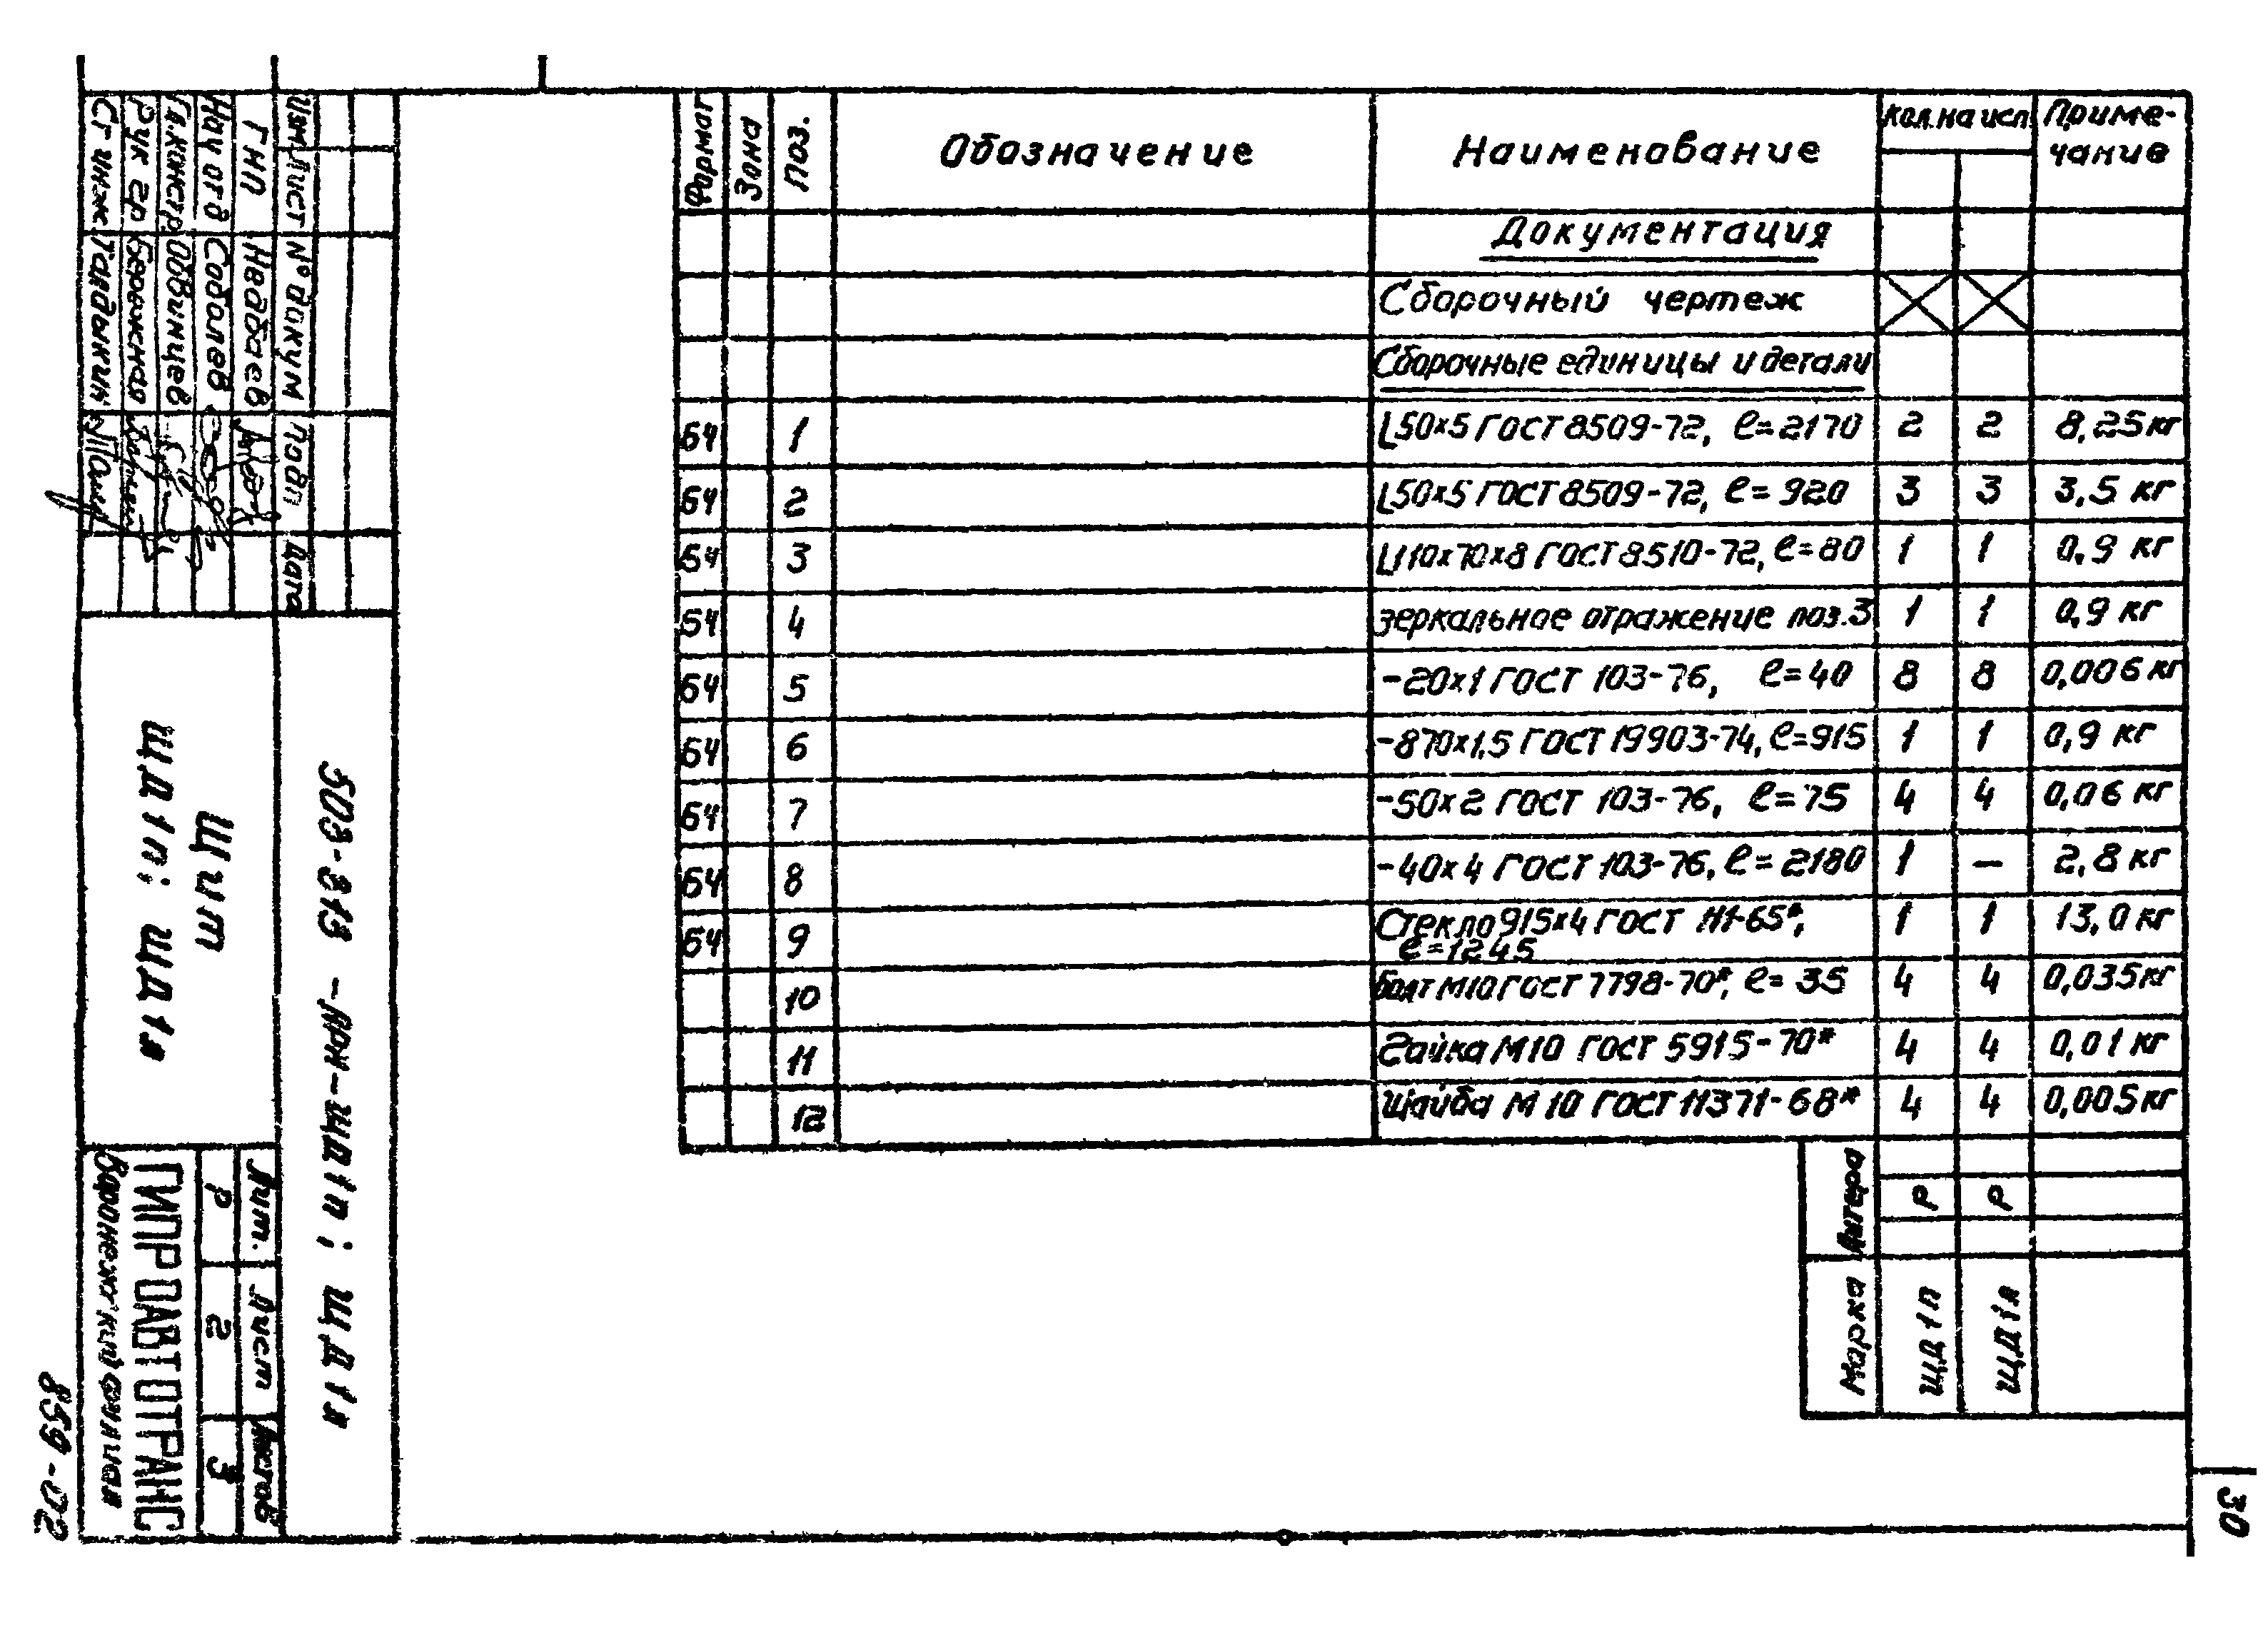 Формат Зона Поз. Обозначение Наименование Кол. на исп. Приме-
чание
Документация
Сборочный чертеж
Сборочные единицы и детали
БЧ 1 L50х5 ГОСТ 8509-72, ℓ=2170 2 2 8,25 кг
БЧ 2 L50х5 ГОСТ 8509-72, ℓ=920 3 3 3,5 кг
БЧ 3 L110х70х8 ГОСТ 8510-72, ℓ=80 1 1 0,9 кг
БЧ 4 зеркальное отражение поз.3 1 1 0,9 кг
БЧ 5 -20х1 ГОСТ 103-76, ℓ=40 8 8 0,006 кг
БЧ 6 -870х1,5 ГОСТ 19903-74, ℓ=915 1 1 0,9 кг
БЧ 7 -50х2 ГОСТ 103-76, ℓ=75 4 4 0,06 кг
БЧ 8 -40х4 ГОСТ 103-76, ℓ=2180 1 — 2,8 кг
БЧ 9 Стекло 915х4 ГОСТ 111-65*, 1 1 13,0 кг
ℓ=1245
10 Болт М10 ГОСТ 7798-70*, ℓ=35 4 4 0,035 кг
11 Гайка М10 ГОСТ 5915-70* 4 4 0,01 кг
12 Шайба М10 ГОСТ 11371-68* 4 4 0,005 кг
Литера Р Р
Марка ЩД1п ЩД1л
Изм Лист № докум Подп Дата
ГНП Недбаев
Нач отд Соболев
Гл.констр. Обвинцев
Рук гр Бережная
Ст инж. Гардынкин
503-813 -АРИ-ЩД1п; ЩД1л
Щит
ЩД1п; ЩД1л
Лит. Лист Листов
Р 2 3
ГИПРОАВТОТРАНС
Воронежский филиал
859-02
30